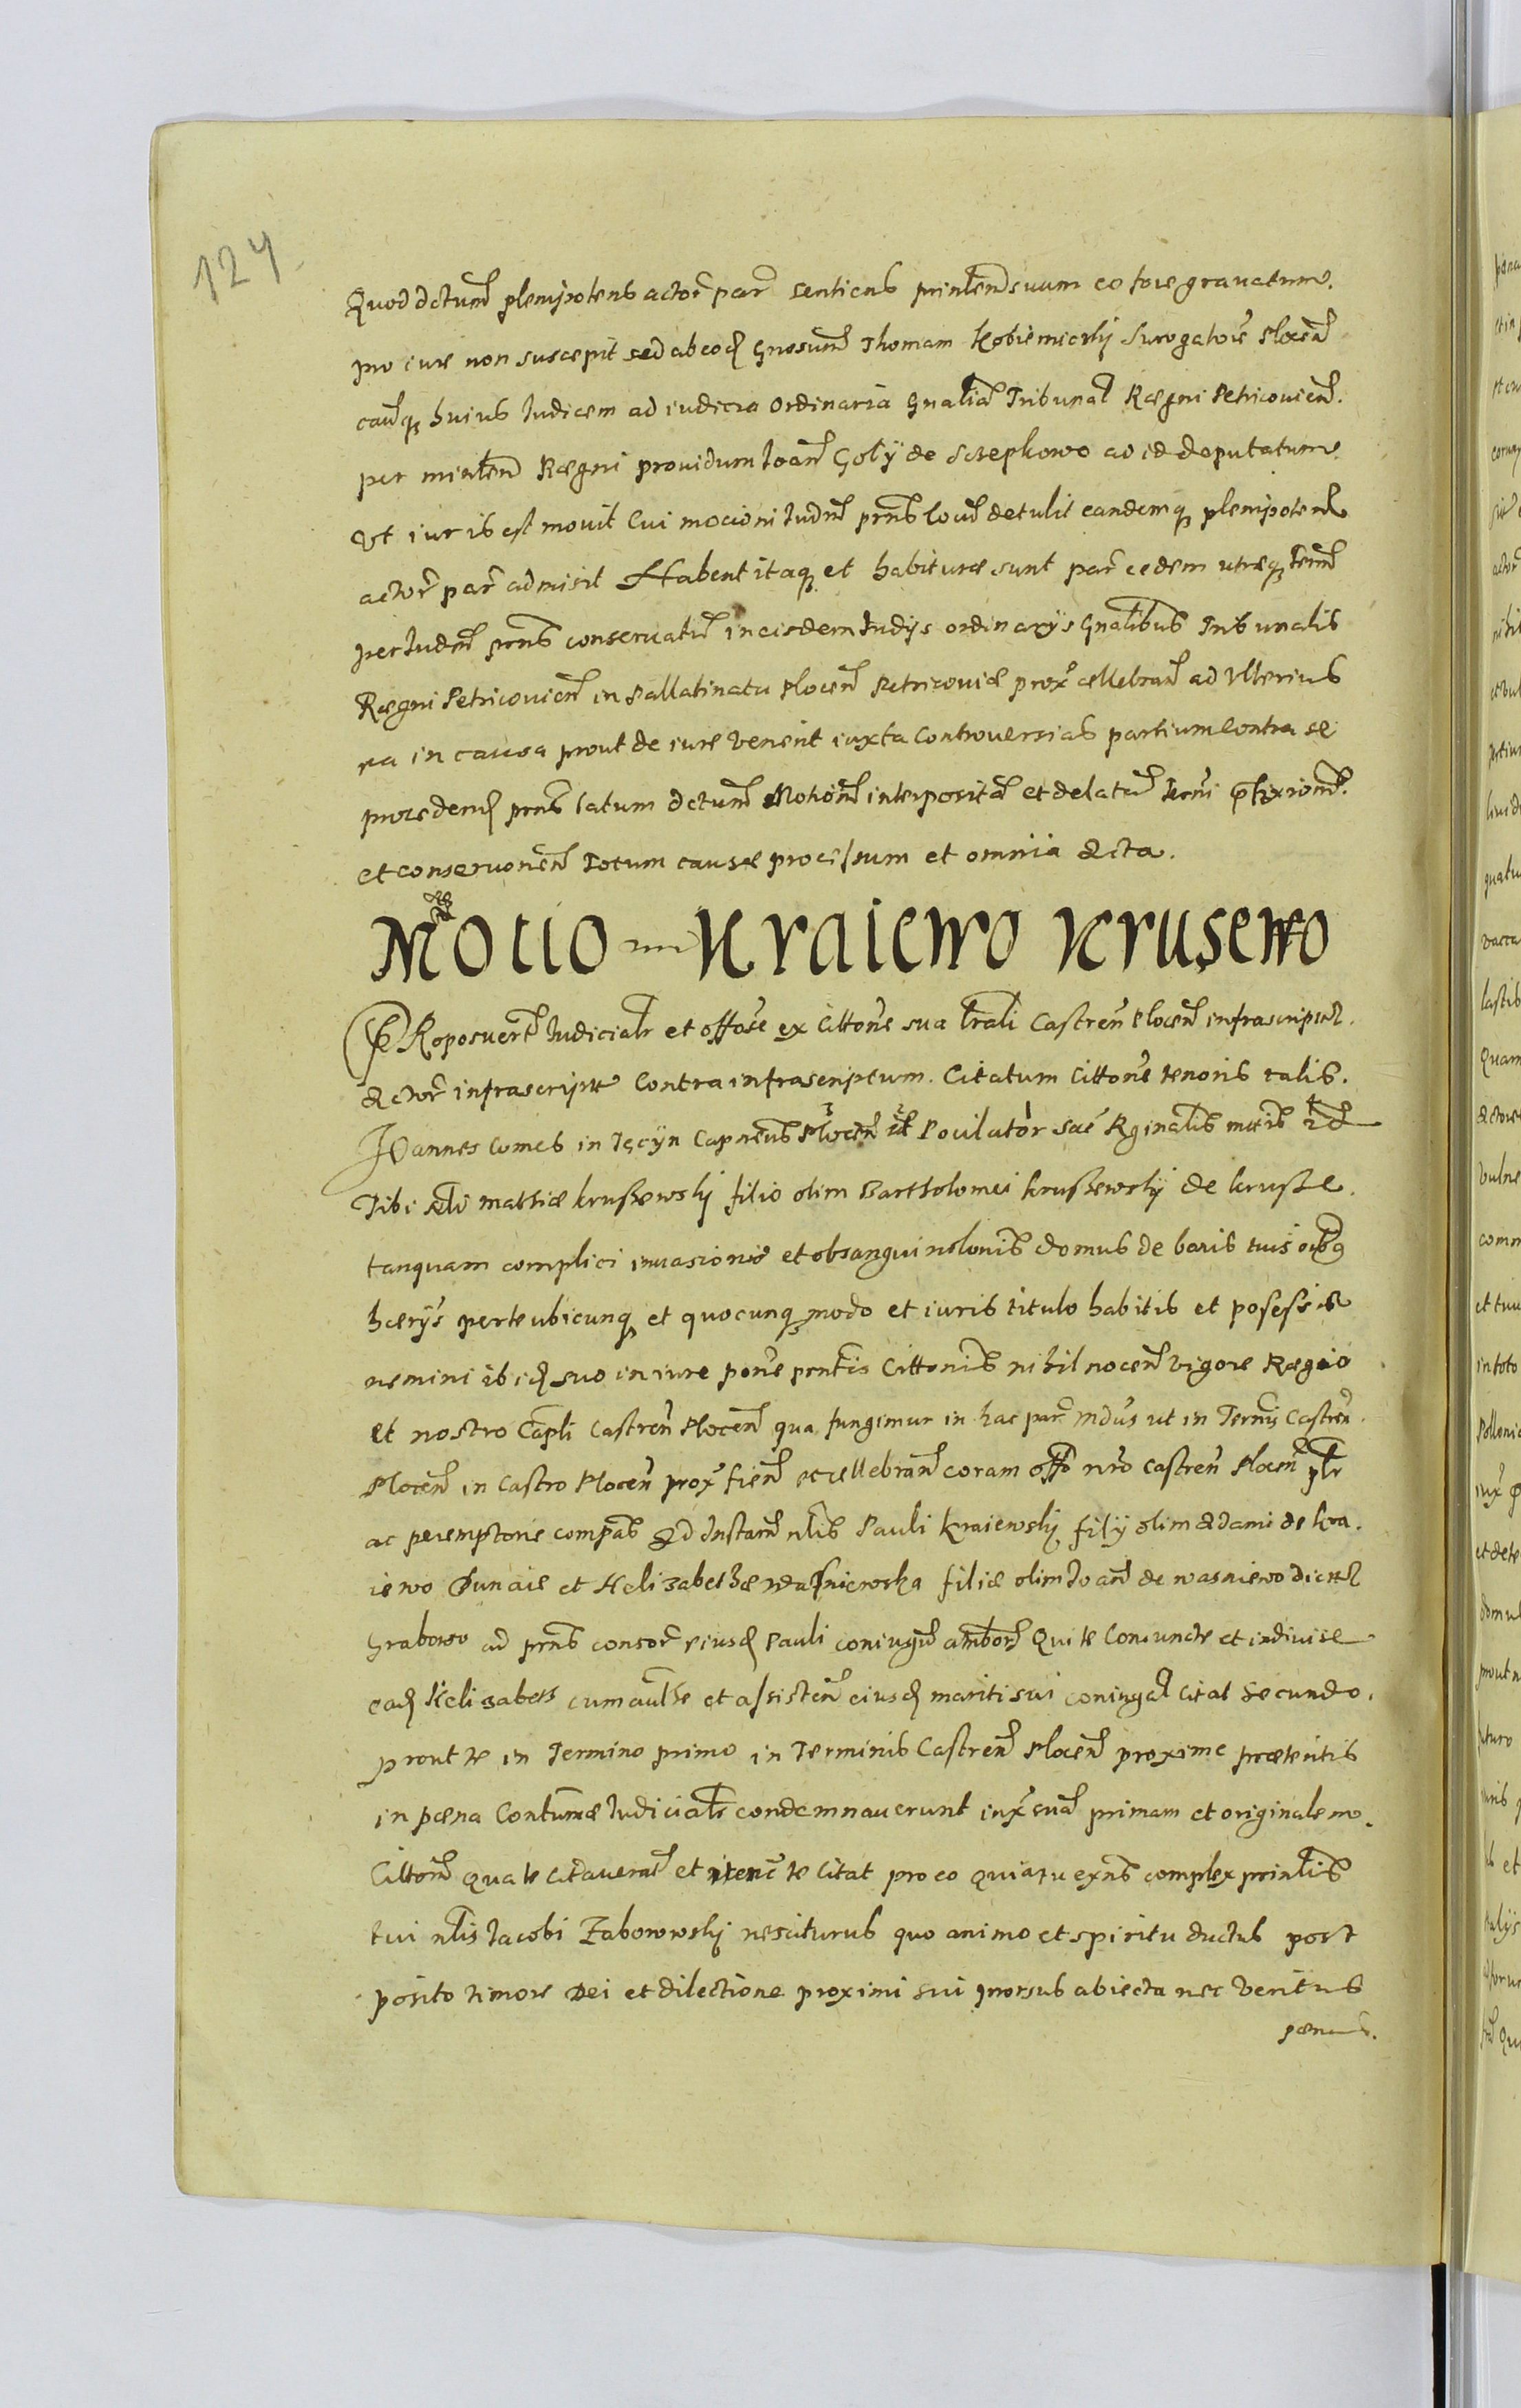 124
Quod dctum plenipotens actor par sentiens prinlem suum eo fore gravatum.
pro iure non suscepit sed ab eod gnosum Thomam Kobierniczky Surogatore Plocen
cauq huius Iudicem ad iudicia Ordinaria Gnalia Tribunal Rægni Petricovien.
per minlem Rægni providum Ioan Goly de Sczepkowo ad id deputatum
Vt iuris est movit Cui mocioni Iudm prns locu detulit eandemq plenipotem
actor par admisit Habent itaq et habituræ sunt par eedem utræq term
per Iudm prns conservatu in eisdem Iudys ordinarys Gnalibus Tribunalis
Rægni Petricovien in Pallatinatu Plocen Petricoviæ prox cellebran ad Ulterius
ea in causa prout de iure venerit iuxta Controversias partium Contra se
procedend prns latum dctum Motionem interposita et delata termi præfixionem
et conservonem Totum causæ processum et omnia Acta.
Motio Kraiewo Krusewo
PRoposuert Iudicialr et offose ex Cittone sua lrali Castren Plocen infrascript.
Actor infrascript Contra infrascriptum. Citatum Cittone tenoris talis.
IOannes Comes in Tęcyn Capneus Plocen et Pocilator Sae Rginalis mttis
Tibi Nli Mathiæ Krussewsky filio olim Bartholomei Krussewsky de Krusse.
tanquam complici invasionis et obsanguinolonis domus de bonis tuis oibq
hærys per te ubicunq et quocunq modo et iuris titulo habitis et posessis
nemini ibid suo in iure pone prntis Cittonis nihil nocen vigore Rægio
et nostro Capli Castren Plocen qua fungimur in hac par Mdus ut in Termis Castren.
Plocen in Castro Plocen prox fien et cellebran coram offo nro Castren Plocen plr
ac peremptorie compas Ad Instam nlis Pauli Kraiewsky fily olim Adami de Kra.
iewo Dunaie et Helizabethæ Wasniewska filiæ olim Ioan de Wasniewo dictt
Grabowo ad prns consor eiusd Pauli coniugu ambor Qui te Coniuncte et indivise
ead Helizabeth cum authe et assisten eiusd mariti sui coniugal citat Secundo.
prout te in Termino primo in Terminis Castren Plocen proxime præteritis
in pæna Contumæ Iudicialr condemnaverunt iux sua primam et originalem.
Cittom qua te citaverat et itenc te Citat pro eo quia tu exns complex prinlis
tui nlis Iacobi Zaborowsky nesciturus quo animo et spiritu ductus post
posito timore Dei et dilectione proximi sui prorsus abiecta nec veritus
pænas.